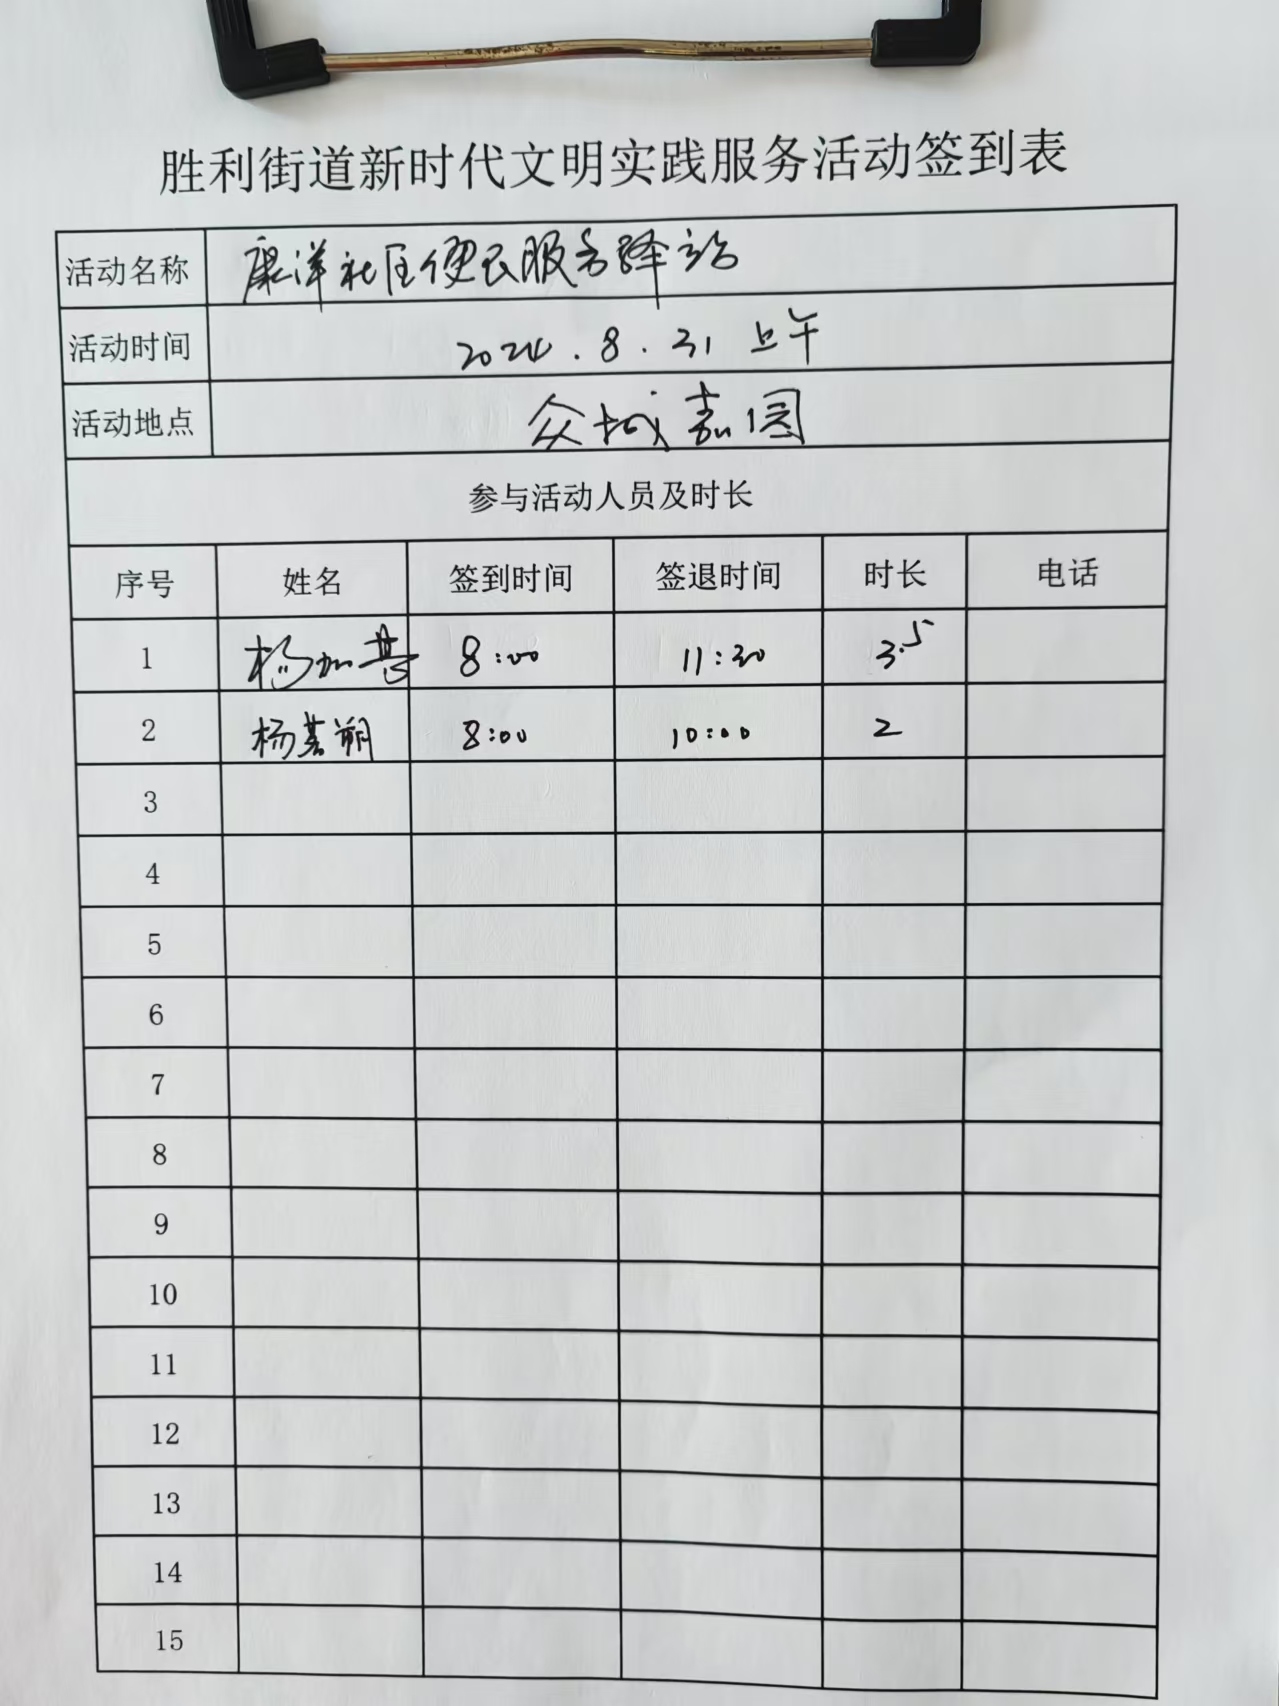 胜利街道新时代文明实践服务活动签到表
活动名称 康洋社区便民服务驿站
活动时间 2024.8.31 上午
活动地点 众城嘉园
参与活动人员及时长
序号 姓名 签到时间 签退时间 时长 电话
1 杨加 8:00 11:30 3.5
2 杨茗朔 8:00 10:00 2
3
4
5
6
7
8
9
10
11
12
13
14
15